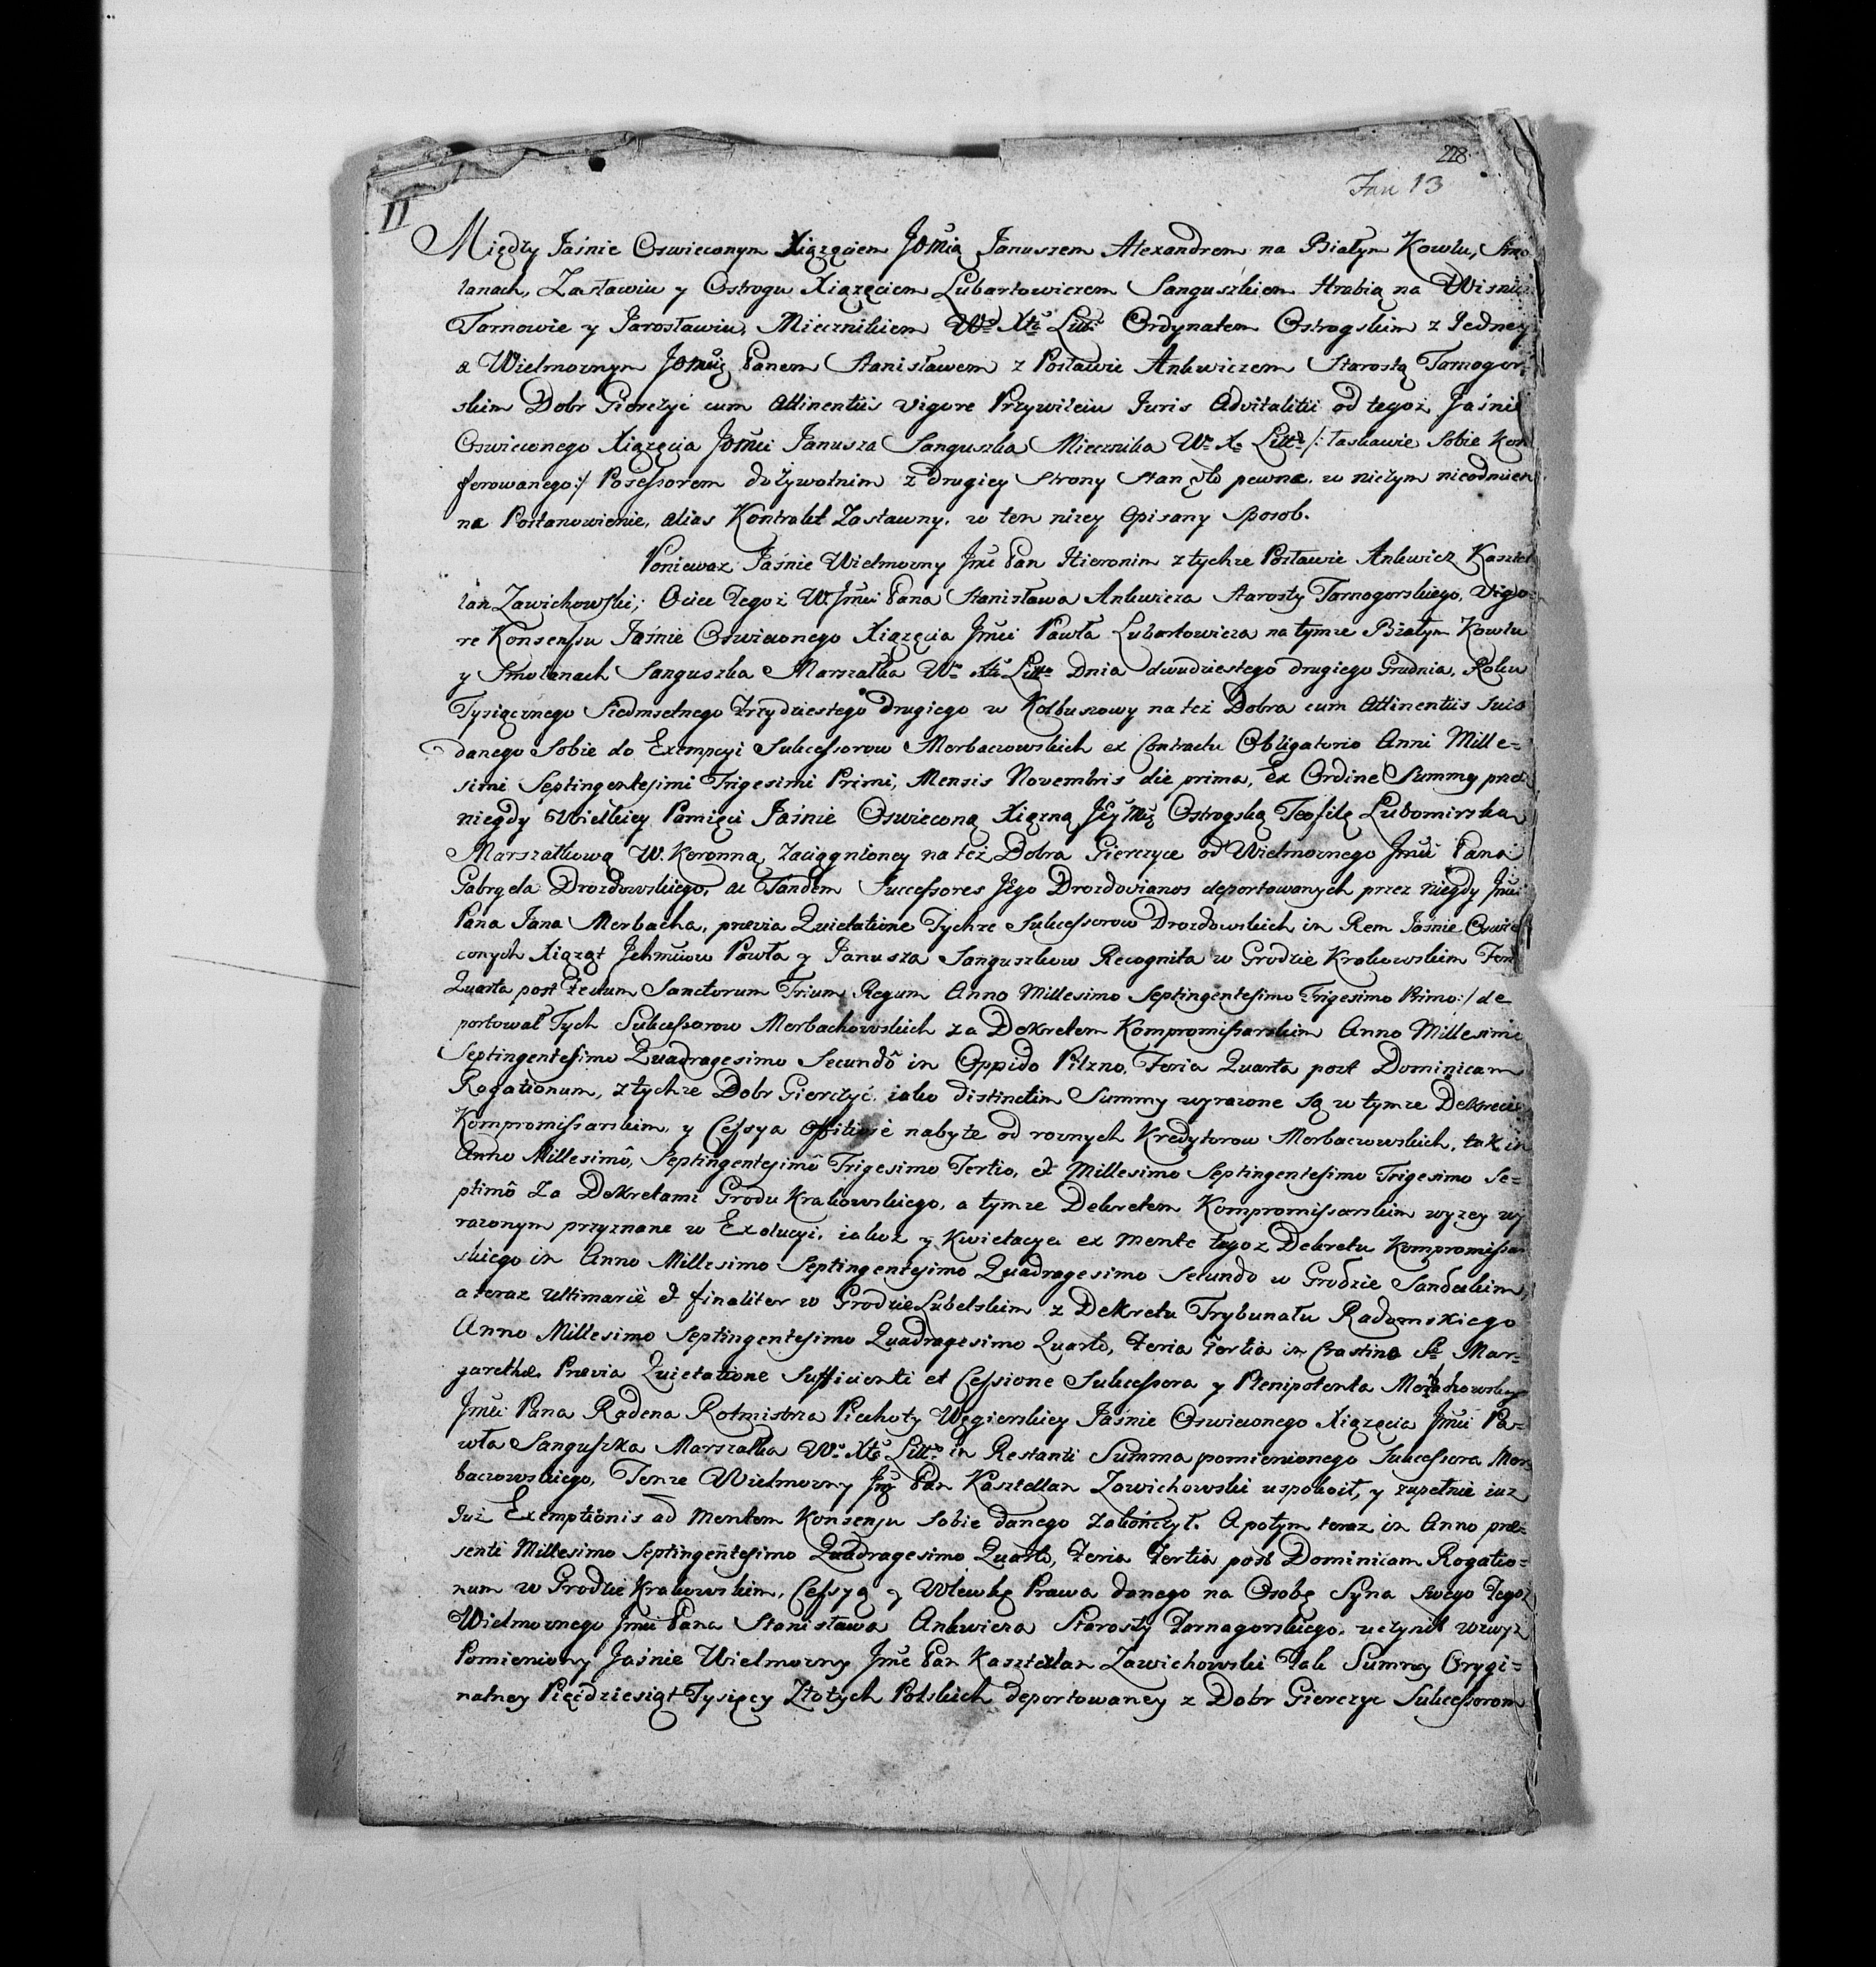 228.
Jan 13
II
Między Jaśnie Oswieconym Xiązęciem JOMcią Januszem Alexandrem na Białym Kowlu, Smo
lanach, Zasławiu y Ostrogu Xiązęciem Lubartowiczem Sanguszkiem Hrabią na Wisnic
Tarnowie y Jarosławiu, Miecznikiem Wo Xtwa Litt: Ordynatem Ostrogskim z Jedney
a Wielmoznym JOMcią Panem Stanisławem z Posławic Ankwiczem Starostą Tarnogor=
skim Dobr Gierczyć cum Attinentiis vigore Przywileiu Juris Advitalitii od tegoż Jaśnie
Oswieconego Xiązęcia JOMci Janusza Sanguszka Miecznika Wo Xa Litto /: łaskawie Sobie Kon
ferowanego:/ Possessorem dożywotnim z drugiey Strony Stanęło pewne, w niczym nieodmien
ne Postanowienie, alias Kontrakt Zastawny, w ten nizey Opisany Sposob.
Poniewaz Jaśnie Wielmozny Jmć Pan Hieronim z tychze Posławic Ankwicz Kasztel
lan Zawichowski, Ociec Tegoż W. Jmci Pana Stanisława Ankwicza Starosty Tarnogorskiego, Vigo=
re Konsensu Jaśnie Oswieconego Xiązęcia Jmci Pawła Lubartowicza na tymze Białym Kowlu
y Smolanach Sanguszka Marszałka Wo Xtwa Litto Dnia dwudziestego drugiego Grudnia, Roku
Tysiącznego Siedmsetnego Trzydziestego drugiego w Kolbuszowy na też Dobra cum Attinentiis Suis
danego Sobie do Exempcyi Sukcessorow Morbaczowskich ex Contractu Obligatorio Anni Mille=
simi Septingentesimi Trigesimi Primi, Mensis Novembris die prima, Ex Ordine Summy przez
niegdy Wielkiey Pamięci Jaśnie Oswieconą Xięzną JEyMć Ostrogską Teofilę Lubomirską
Marszałkową W. Koronną zaciągnioney na też Dobra Gierczyce od Wielmoznego Jmci Pana
Gabryela Drozdowskiego, ac Tandem Successores Jego Drozdovianos deportowanych przez niegdy Jmci
Pana Jana Morbacha, prævia Quietatione Tychze Sukcessorow Drozdowskich in Rem Jaśnie Oswie
conych Xiąząt Jchmciow Pawła y Janusza Sanguszkow Recognita w Grodzie Krakowskim Feria
Quarta post Festum Sanctorum Trium Regum Anno Millesimo Septingentesimo Trigesimo Primo:/ de
portował Tych Sukcessorow Morbachowskich za Dekretem Kompromissarskim Anno Millesimo
Septingentesimo Quadragesimo Secundô in Oppido Pilzno, Feria Quarta post Dominicam
Rogationum, z tychze Dobr Gierczyć, iako distinctim Summy wyrazone są w tymze Dekrecie
Kompromissarskim, y Cessya Offitiose nabyte od roznych Kredytorow Morbaczowskich, tak in
Anno Millesimô, Septingentesimô Trigesimo Tertio, et Millesimo Septingentesimo Trigesimo Se=
ptimô za Dekretami Grodu Krakowskiego, a tymze Dekretem Kompromissarskim wyzey wy
razonym przyznane w Exolucyi, iakoż y Kwietacya ex Mente tegoz Dekretu Kompromissar
skiego in Anno Millesimo Septingentesimo Quadragesimo Secundo w Grodzie Sandeckim,
a teraz Ultimarie et finaliter w Grodzie Lubelskim z Dekretu Trybunału Radomskiego
Anno Millesimo Septingentesimo Quadragesimo Quarto, Feria Tertia in Crastino Stæ Mar=
garethæ Prævia Quietatione Sufficienti et Cessione Sukcessora y Plenipotenta Morbachowskiego
Jmci Pana Radena Rotmistrza Piechoty Węgierskiey Jaśnie Oswieconego Xiązęcia Jmci Pa=
wła Sanguszka Marszałka Wo Xtwa Litto in Restanti Summa pomienionego Sukcessora Mor
baczowskiego, Tenze Wielmozny Jmć Pan Kasztellan Zawichowski uspokoił, y zupełnie iuz
Jus Exemptionis ad Mentem Konsensu Sobie danego zakończył. A potym teraz in Anno præ=
senti Millesimo Septingentesimo Quadragesimo Quarto, Feria Tertia post Dominicam Rogatio=
num w Grodzie Krakowskim, Cessyą y Wlewkę Prawa danego na Osobę Syna Swego Tegoż
Wielmoznego Jmci Pana Stanisława Ankwicza Starosty Tarnogorskiego, uczynił wzwyż
Pomieniony Jaśnie Wielmozny Jmć Pan Kasztellan Zawichowski Tak Summy Orygi=
nalney Pięćdziesiąt Tysięcy Złotych Polskich deportowaney z Dobr Gierczyc Sukcessorom